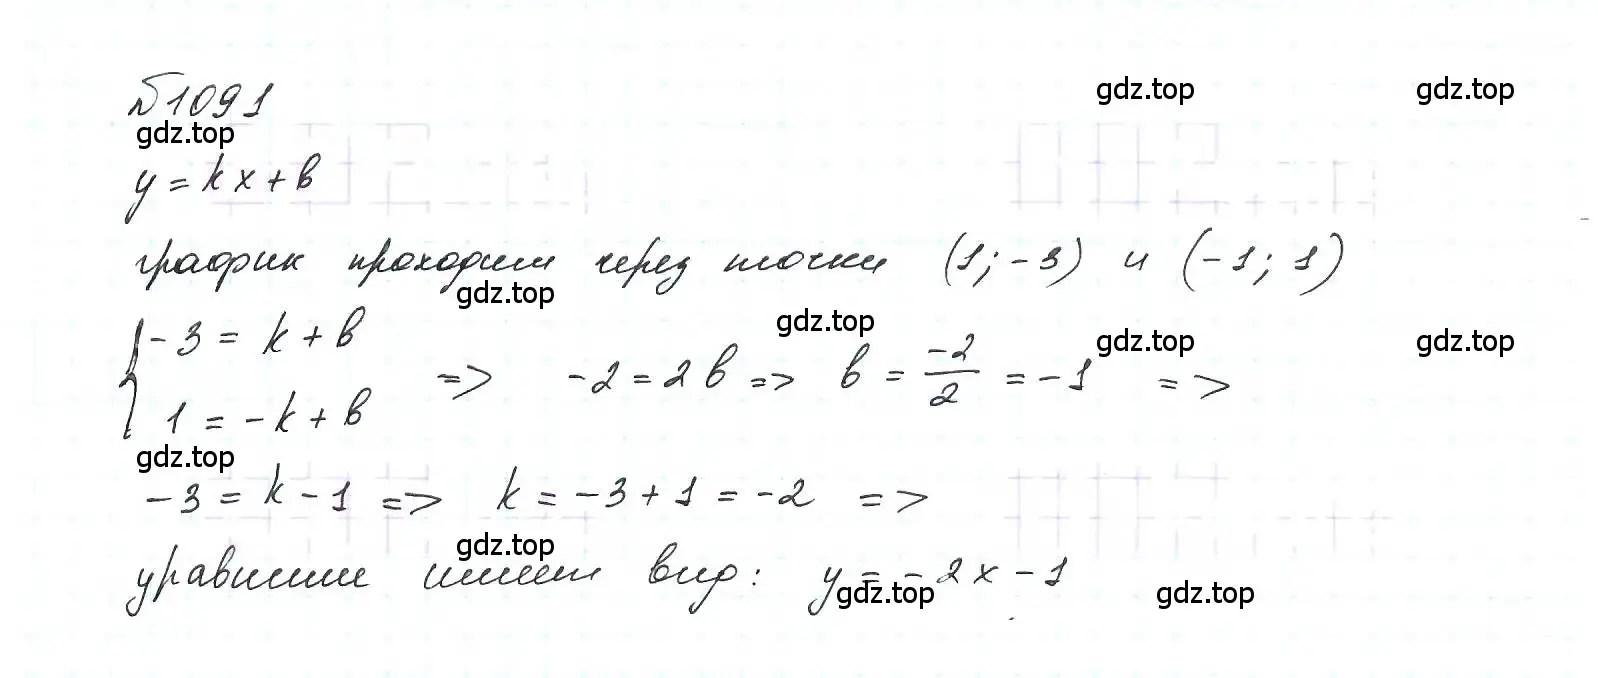 №1091
gdz.top gdz.top
gdz.top
y = kx + b
график проходит через точки (1; -3) и (-1; 1)
gdz.top
gdz.top gdz.top gdz.top
{ -3 = k + b
1 = -k + b => -2 = 2b => b = -2/2 = -1 =>
gdz.top
-3 = k - 1 => k = -3 + 1 = -2 =>
gdz.top
уравнение имеет вид: y = -2x - 1
gdz.top gdz.top